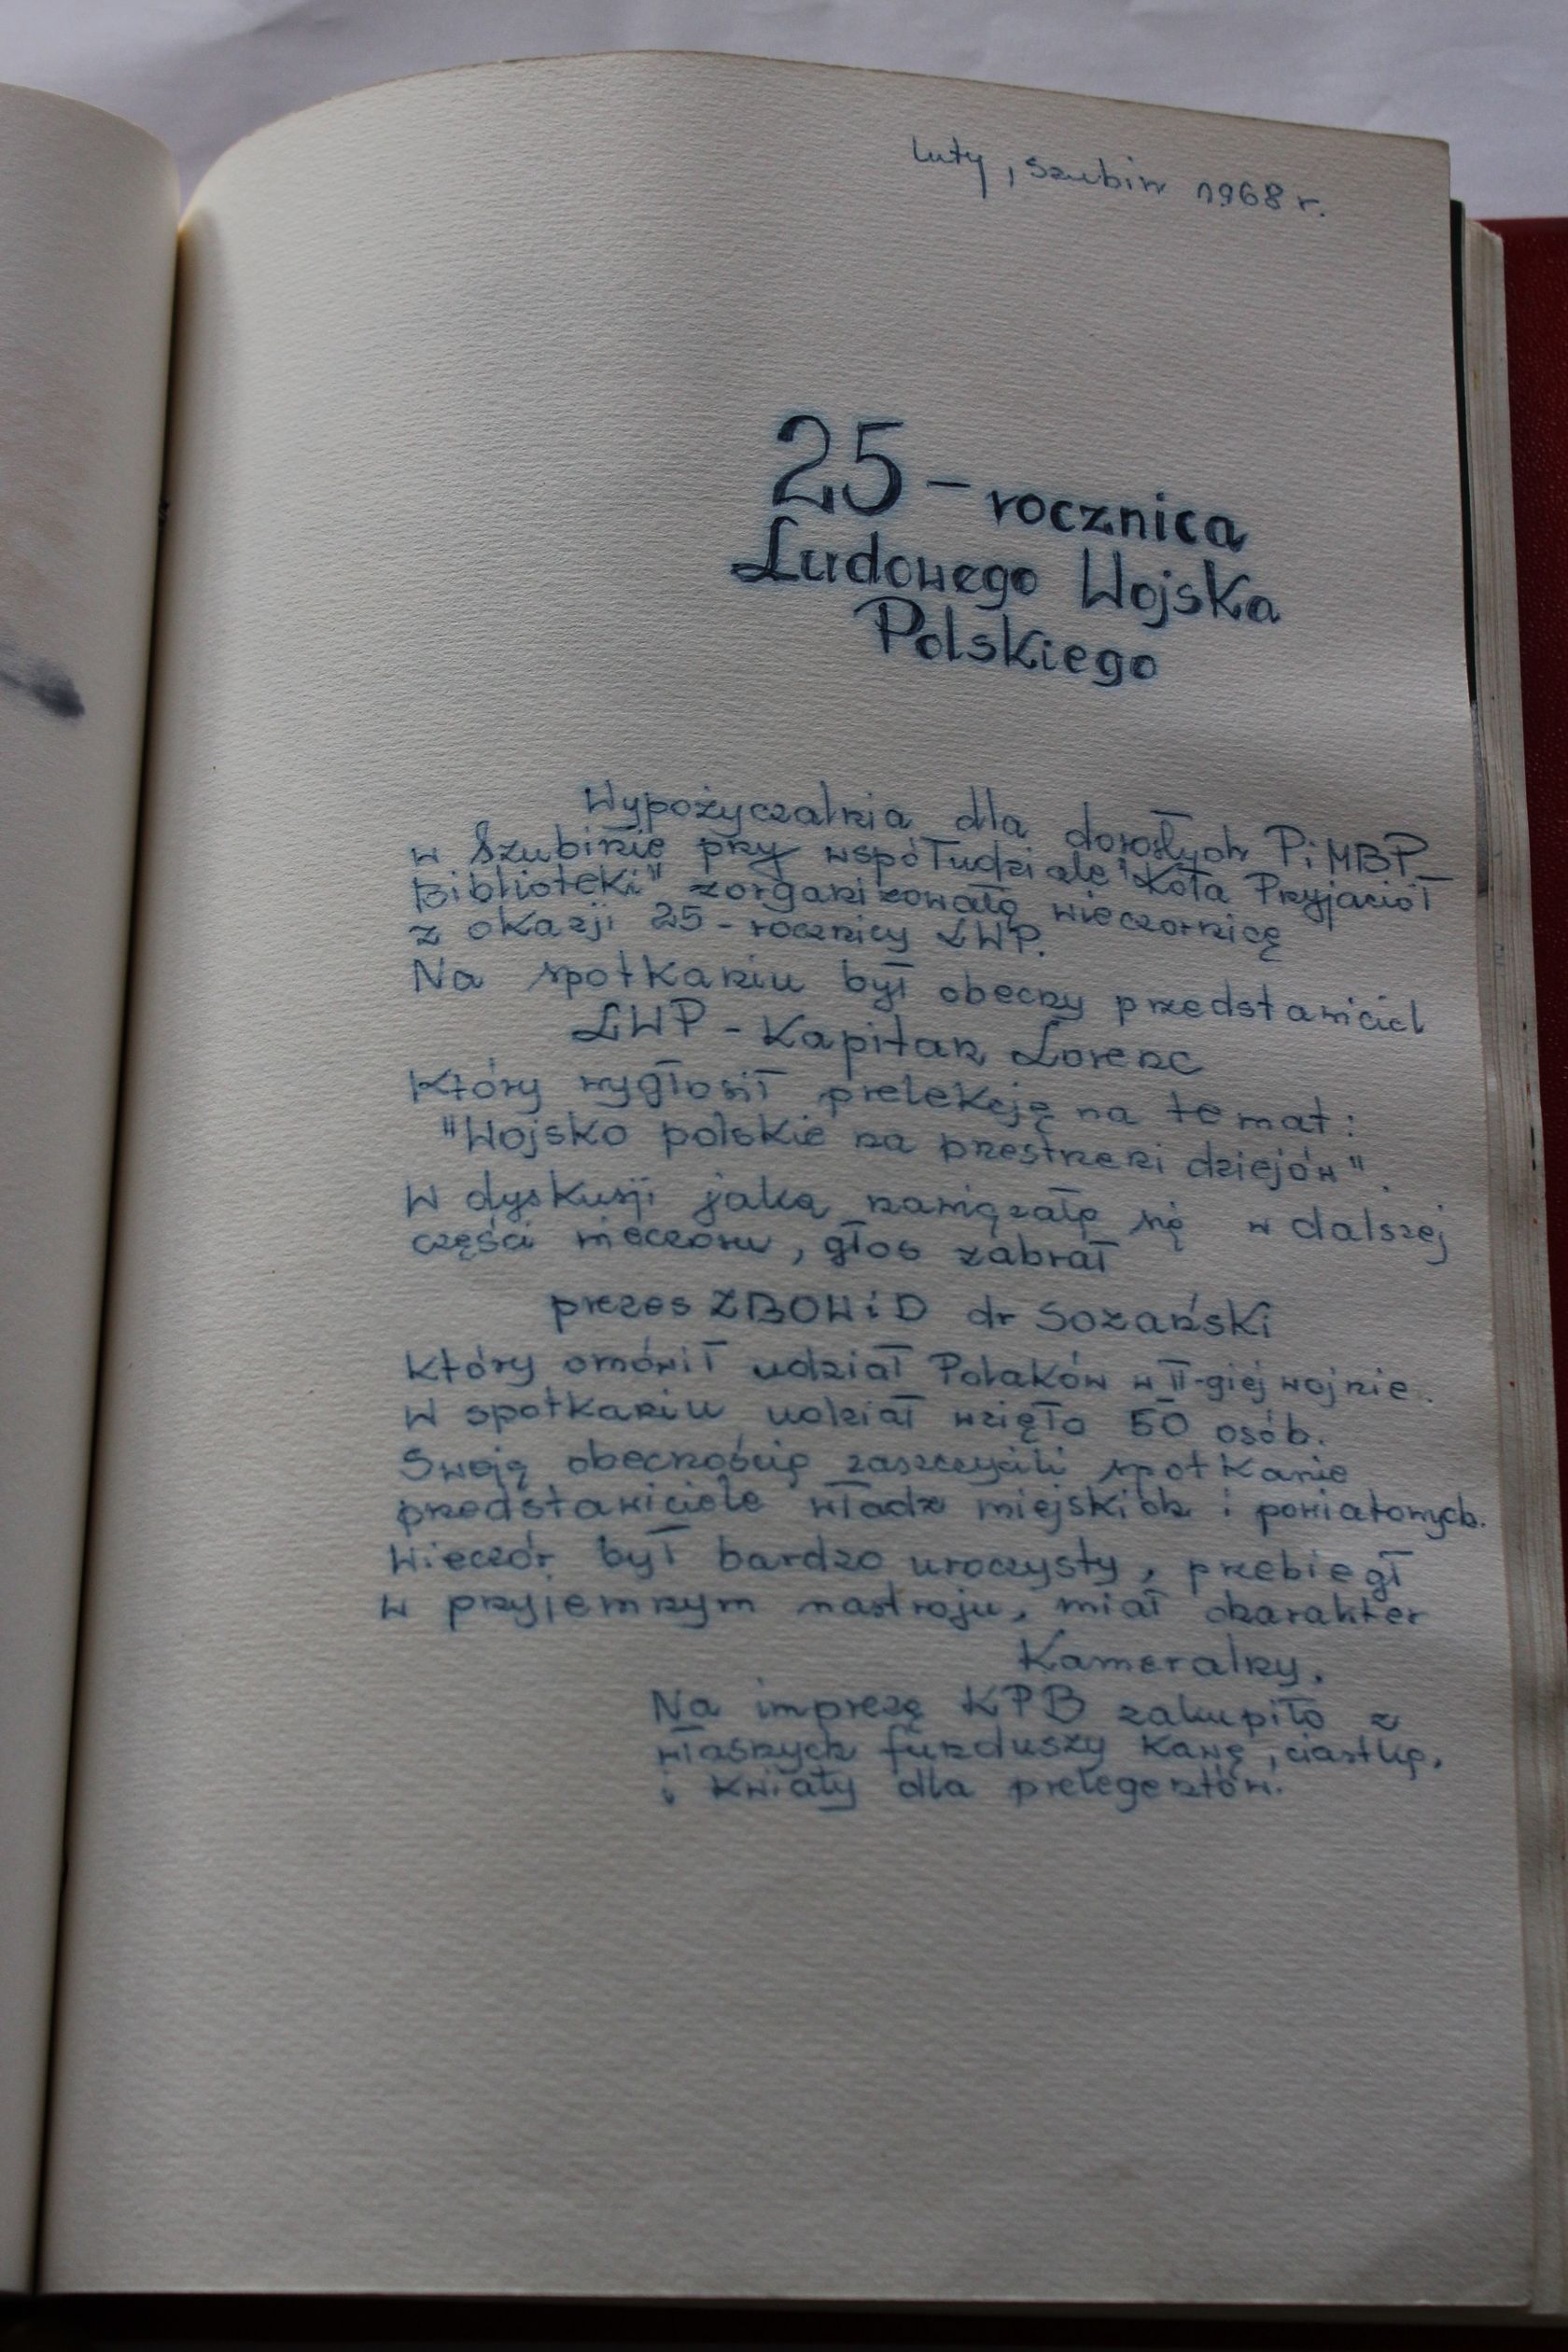 Luty, Szubin 1968 r.
25 - rocznica
Ludowego Wojska
Polskiego
Wypożyczalnia dla dorosłych PiMBP
w Szubinie przy współudziale "Koła Przyjaciół
Biblioteki" zorganizowała wieczornicę
z okazji 25 - rocznicy LWP.
Na spotkaniu był obecny przedstawiciel
LWP - Kapitan Lorenc
Który wygłosił prelekcję na temat:
"Wojsko polskie na przestrzeni dziejów".
W dyskusji jaką nawiązała się w dalszej
części wieczoru, głos zabrał
prezes ZBOWiD dr Sozański
Który omówił udział Polaków w II-giej wojnie.
W spotkaniu udział wzięło 50 osób.
Swoją obecnością zaszczycili spotkanie
przedstawiciele władz miejskich i powiatowych.
Wieczór był bardzo uroczysty, przebiegł
w przyjemnym nastroju, miał charakter
Kameralny.
Na imprezę KPB zakupiło z
własnych funduszy kawę, ciastka,
i kwiaty dla prelegentów.